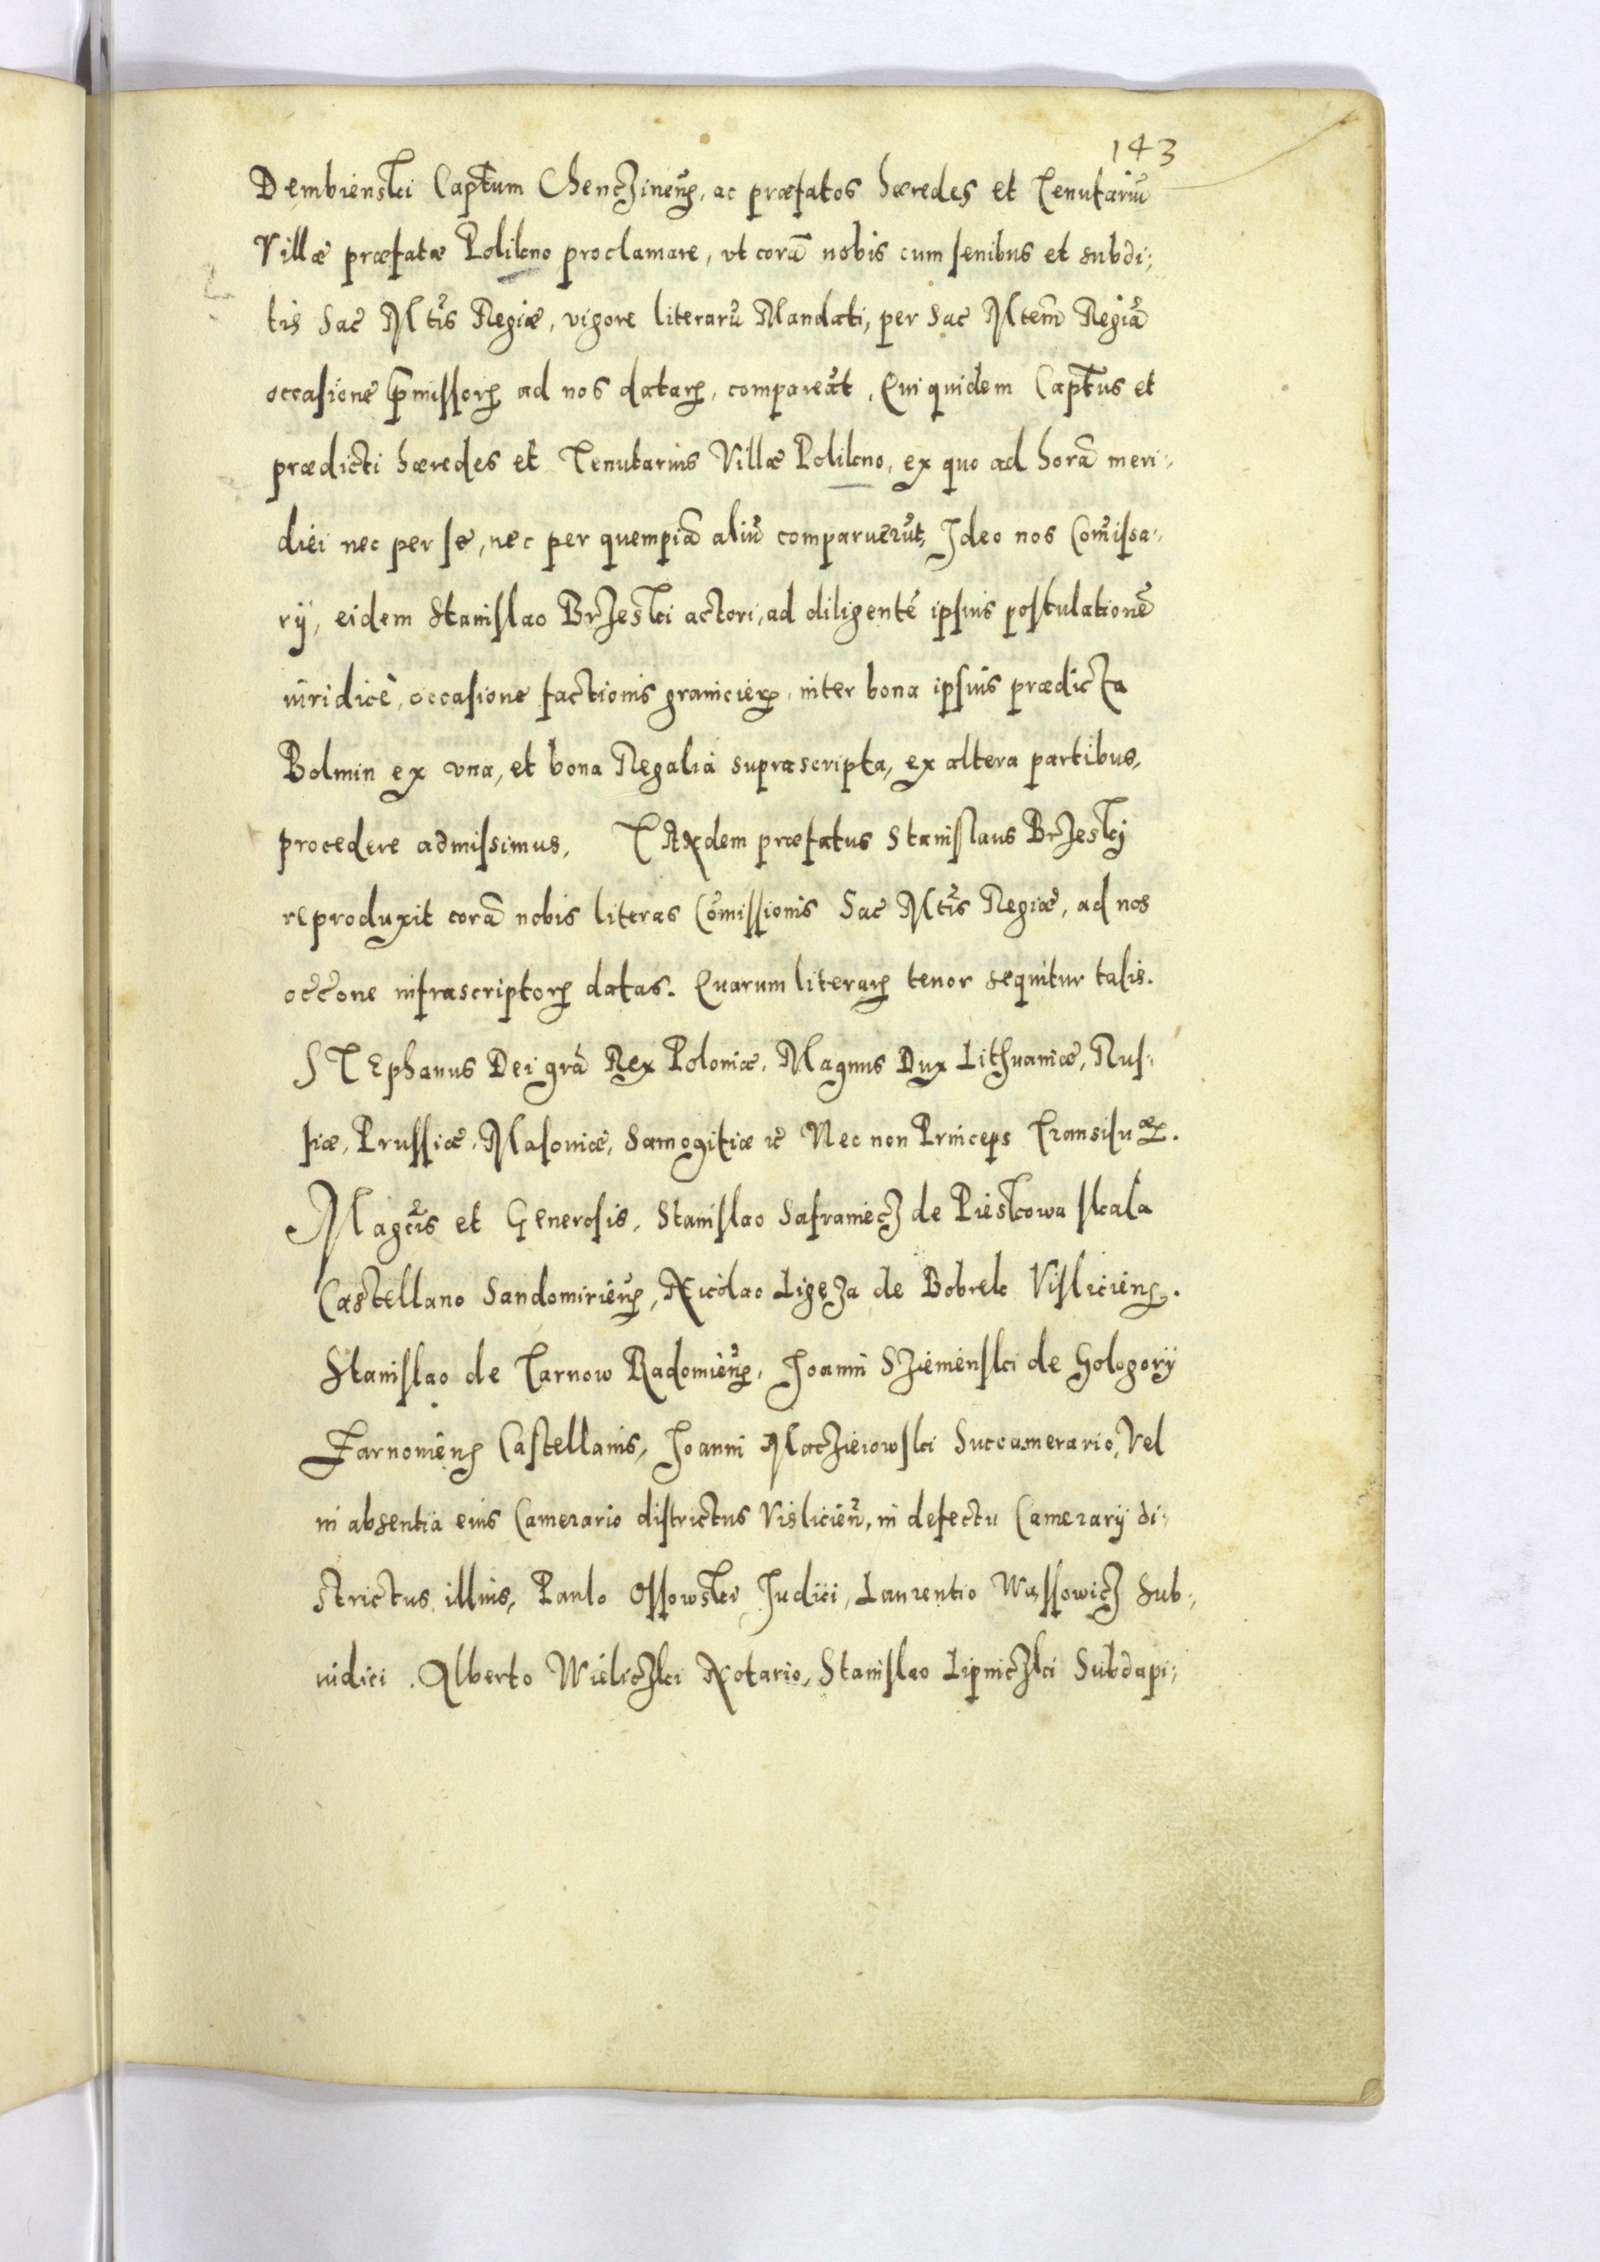 143
Dembienski Captum Chenczinen̄, ac præfatos hæredes et Tenutariū
Villæ præfatæ Polikno proclamare, vt corā nobis cum senibus et subdi:
tis Sac̄ Mtis Regiæ, vigore literarū Mandati, per Sac̄ Mtem̄ Regiā
occasione p̄missoꝝ ad nos dataꝝ, compareāt, Qui quidem Captus et
prædicti hæredes et Tenutarius Villæ Polikno, ex quo ad horā meri:
diei nec per se, nec per quempiā aliū comparuerūt, Ideo nos Com̄issa:
rij, eidem Stanislao Brzeski actori, ad diligentē ipsius postulationē
iuridicè, occasione factionis granicieꝝ, inter bona ipsius prædicta
Bolmin ex vna, et bona Regalia suprascripta, ex altera partibus,
procedere admissimus, TANdem præfatus Stanislaus Brzeskj
reproduxit corā nobis literas Com̄issionis Sac̄ Mtis Regiæ, ad nos
occ̄one infrascriptoꝝ datas. Quarum literaꝝ tenor sequitur talis.
STEphanus Dei grā Rex Poloniæ, Magnus Dux Lithuaniæ, Rus:
siæ, Prussiæ, Masouiæ, Samogitiæ &c̄ Nec non Princeps Transiluæ.
Magcis et Generosis, Stanislao Safraniecz de Pieskowa skala
Castellano Sandomirien̄, Nicolao Ligęza de Bobrek Vislicien̄.
Stanislao de Tarnow Radomien̄, Joanni Sziemenski de Gologory
Zarnouien̄ Castellanis, Joanni Macziejowski Succamerario, Vel
in absentia eius Camerario districtus Vislicien̄, in defectu Camerarij di:
strictus illius, Paulo Ossowski Judici, Laurentio Wassowicz Sub:
iudici. Alberto Wieliczki Notario, Stanislao Lipniczki Subdapi: